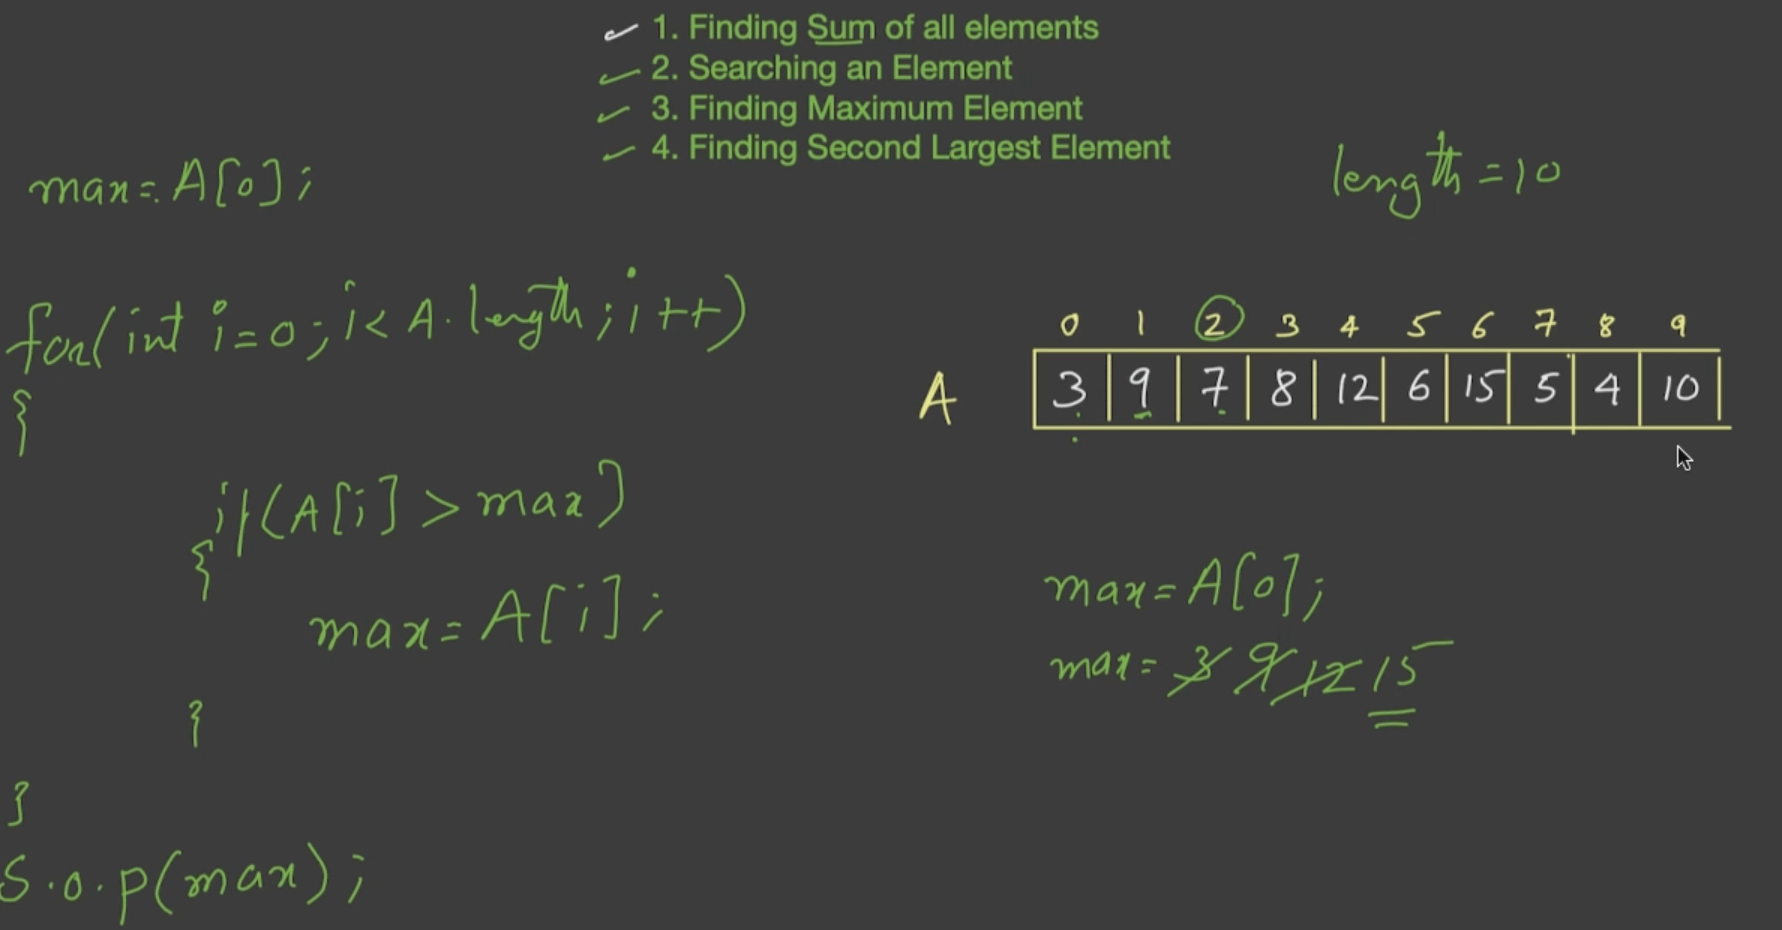 1. Finding Sum of all elements
2. Searching an Element
3. Finding Maximum Element
4. Finding Second Largest Element
max = A[0];
for(int i=0; i< A.length; i++)
{
if(A[i] > max)
{
max = A[i];
}
}
S.o.p(max);
length = 10
0 1 2 3 4 5 6 7 8 9
A 3 9 7 8 12 6 15 5 4 10
max = A[0];
max = 3 9 12 15